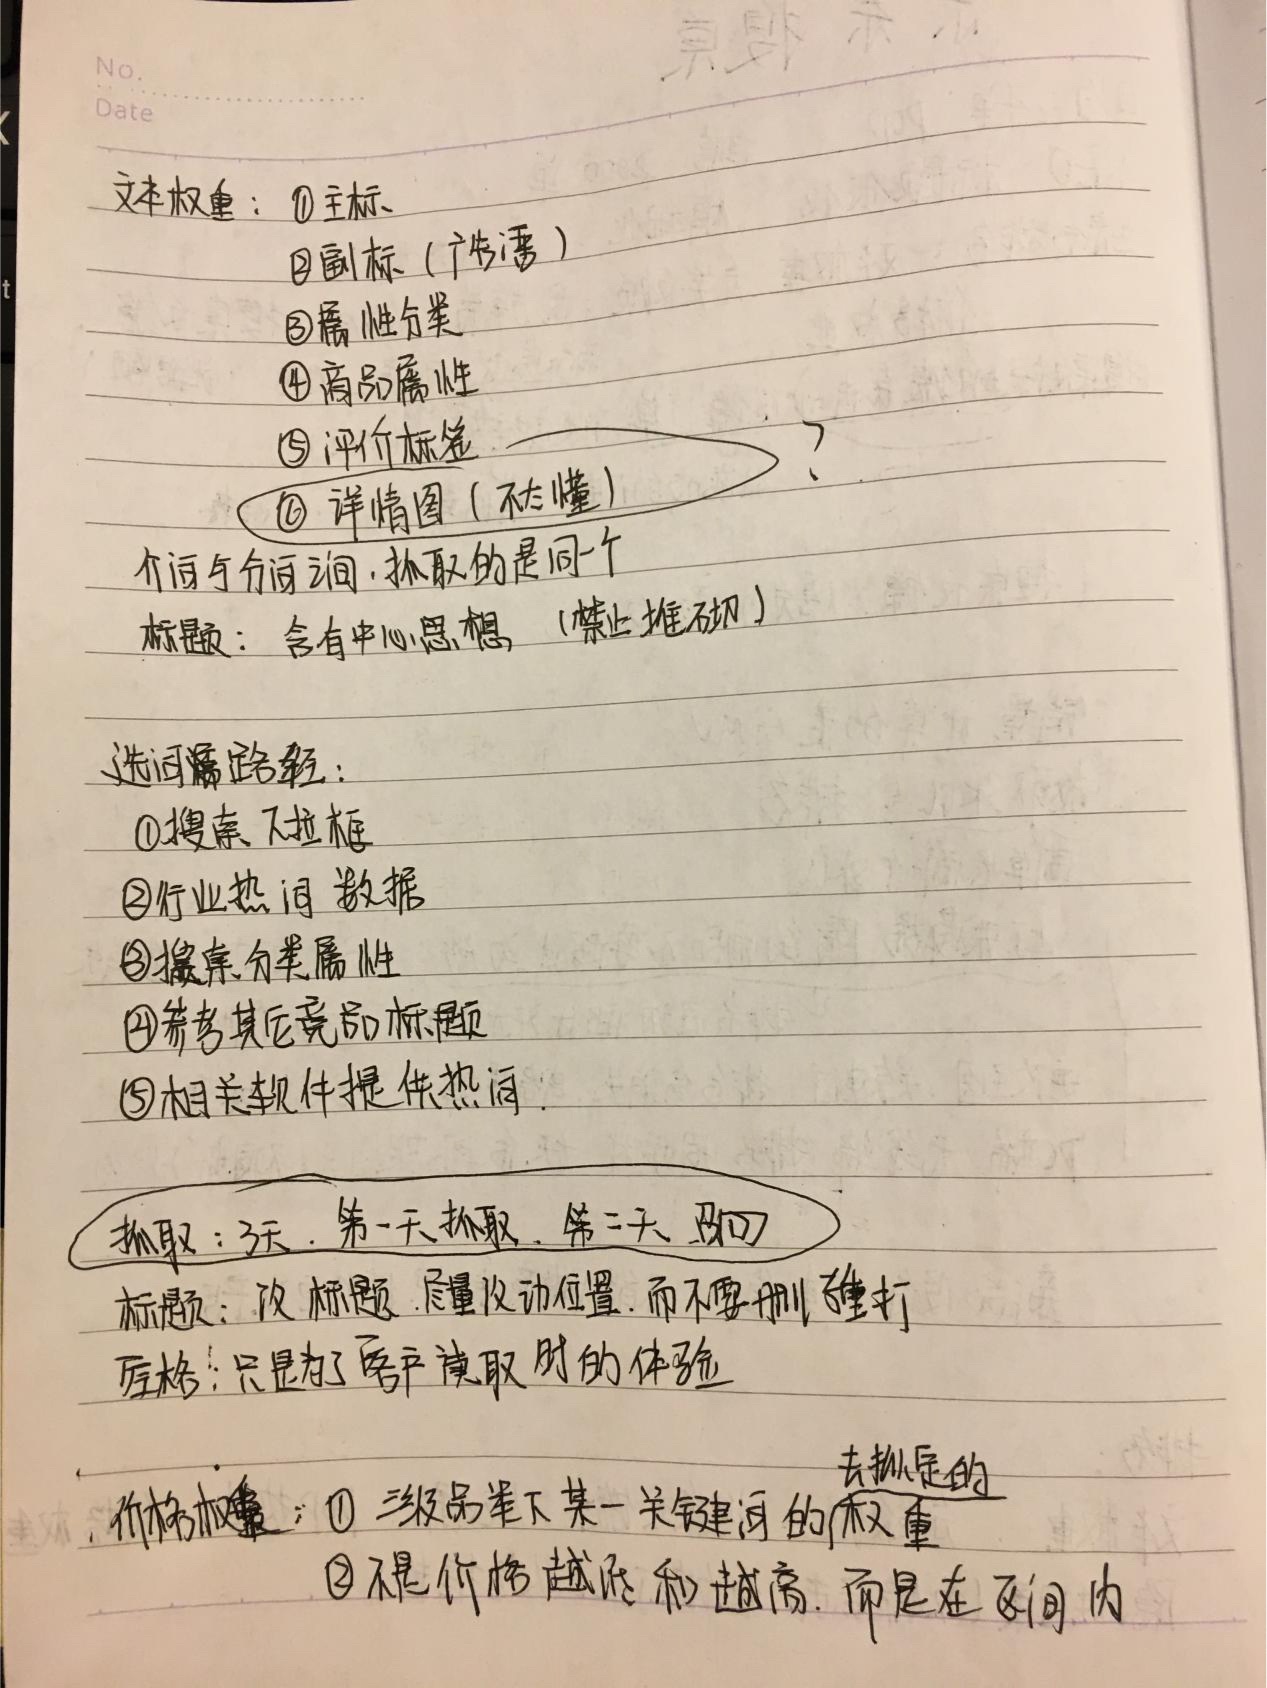 No.
Date
文本权重：①主标
②副标（广告语）
③属性分类
④商品属性
⑤评价标签
⑥详情图（不太懂）？
个词与分词之间，抓取的是同一个
标题：含有中心思想（禁止堆砌）
选词路径：
①搜索下拉框
②行业热词数据
③搜索分类属性
④参考其它竞品标题
⑤相关软件提供热词.
抓取：3天.第一天抓取.第二天
标题：改标题.尽量改动位置.而不要删
空格：只是为了客户读取时的体验
去抓定的
价格权重：①三级品类下某一关键词的权重
②不是价格越低和越高.而是在区间内